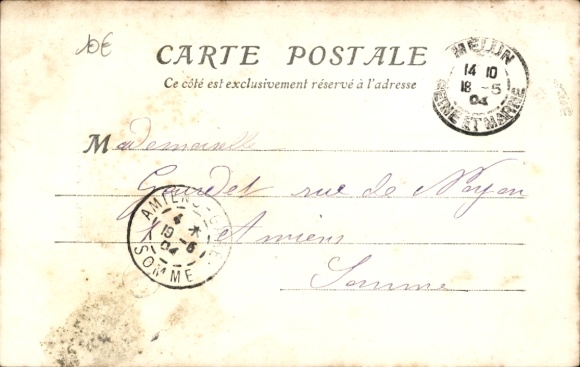 10€
CARTE POSTALE
Ce côté est exclusivement réservé à l'adresse
MELUN
14 10
18 -5
04
SEINE ET MARNE
Mademoiselle
Gourdet rue de Noyon
Amiens
Somme
AMIENS
4 *
19 -5
04
SOMME